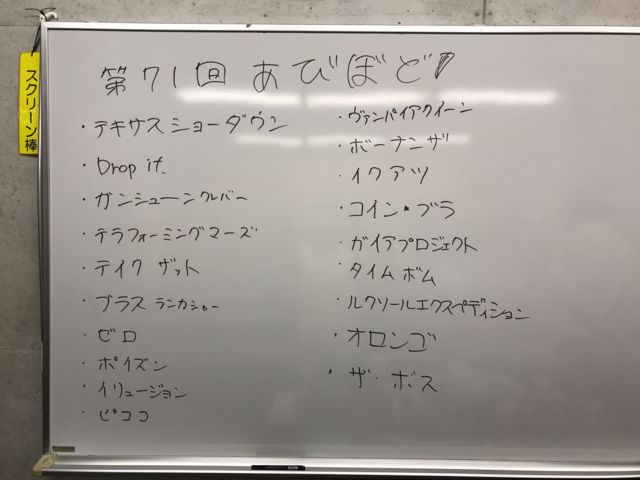 スクリーン棒
第71回 あびぼど!
・テキサスショーダウン
・Drop it.
・ガンシューンクレバー
・テラフォーミングマーズ
・テイク ザット
・ブラス ランカシャー
・ゼロ
・ポイズン
・イリュージョン
・ピココ
・ヴァンパイアクイーン
・ボーナンザ
・イクアツ
・コイン・ブラ
・ガイアプロジェクト
・タイムボム
・ルクソールエクスペディション
・オロンゴ
・ザ・ボス